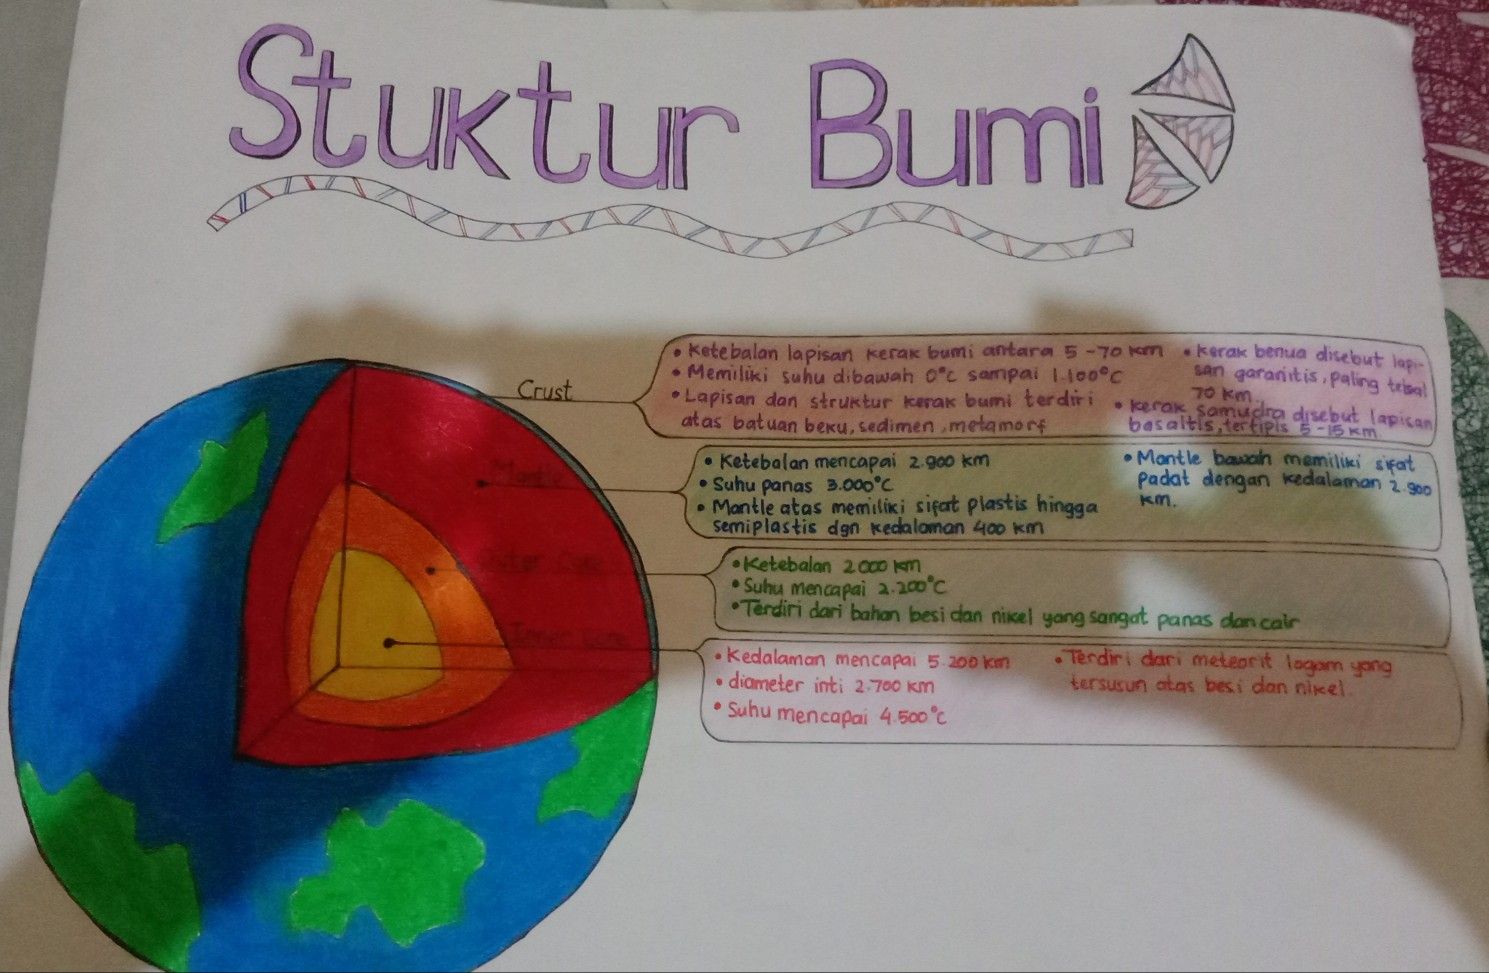 Stuktur Bumi
Crust
• Ketebalan lapisan kerak bumi antara 5 - 70 km
• Memiliki suhu dibawah 0°c sampai 1.100°c
• Lapisan dan struktur kerak bumi terdiri
atas batuan beku, sedimen, metamorf
• kerak benua disebut lapi-
san garanitis, paling tebal
70 km.
• kerak samudra disebut lapisan
basaltis, tertipis 5 -15 km
Mantle
• Ketebalan mencapai 2.900 km
• Suhu panas 3.000°C
• Mantle atas memiliki sifat plastis hingga
semiplastis dgn kedalaman 400 km
• Mantle bawah memiliki sifat
padat dengan kedalaman 2.900
km.
Outer Core
• Ketebalan 2000 km
• Suhu mencapai 2.200°C
• Terdiri dari bahan besi dan nikel yang sangat panas dan cair
Inner core
• Kedalaman mencapai 5.200 km
• diameter inti 2.700 km
• Suhu mencapai 4.500°C
• Terdiri dari meteorit logam yang
tersusun atas besi dan nikel.